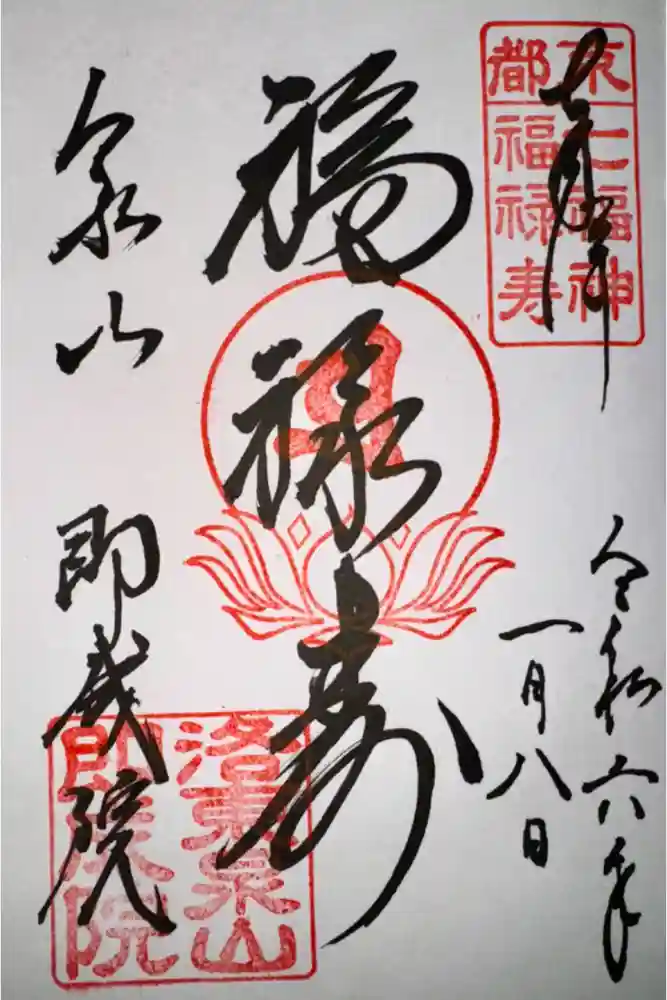 奉拝
京都
七福神
福禄寿
令和六年
一月八日
福禄寿
泉山 即成院
洛東泉山
即成院